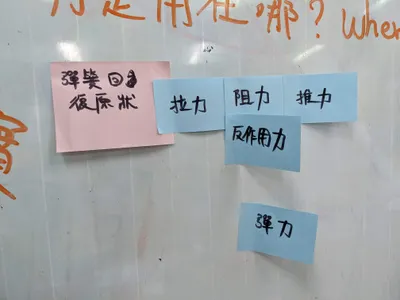 力是用在哪? When
彈簧回
復原狀
拉力
阻力
推力
反作用力
彈力